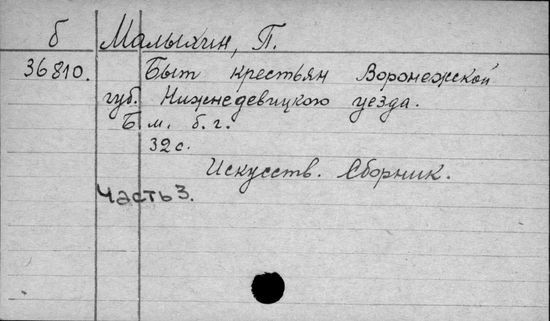 б Малыхин, П.
36810. Быт крестьян Воронежской
губ. Нижнедевицкого уезда.
Б м. б. г.
32 с.
Искусств. Сборник.
Часть 3.